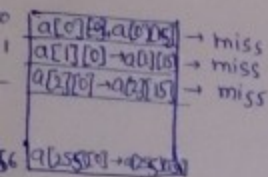 0 a[0][0], a[0][15] → miss
1 a[1][0] → a[1][15] → miss
a[2][0] → a[2][15] → miss
a[255][0] → a[255][15]